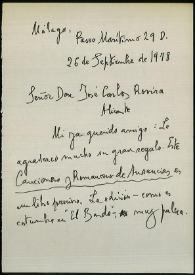 Málaga: Paseo Marítimo 29 D.
26 de Septiembre de 1978
Señor Don José Carlos Rovira
Alicante
Mi ya querido amigo: Le
agradezco mucho su gran regalo. Este
Cancionero y Romancero de Ausencias, es
un libro precioso. La edición - como es
costumbre en "El Bardo" - muy pulcra.